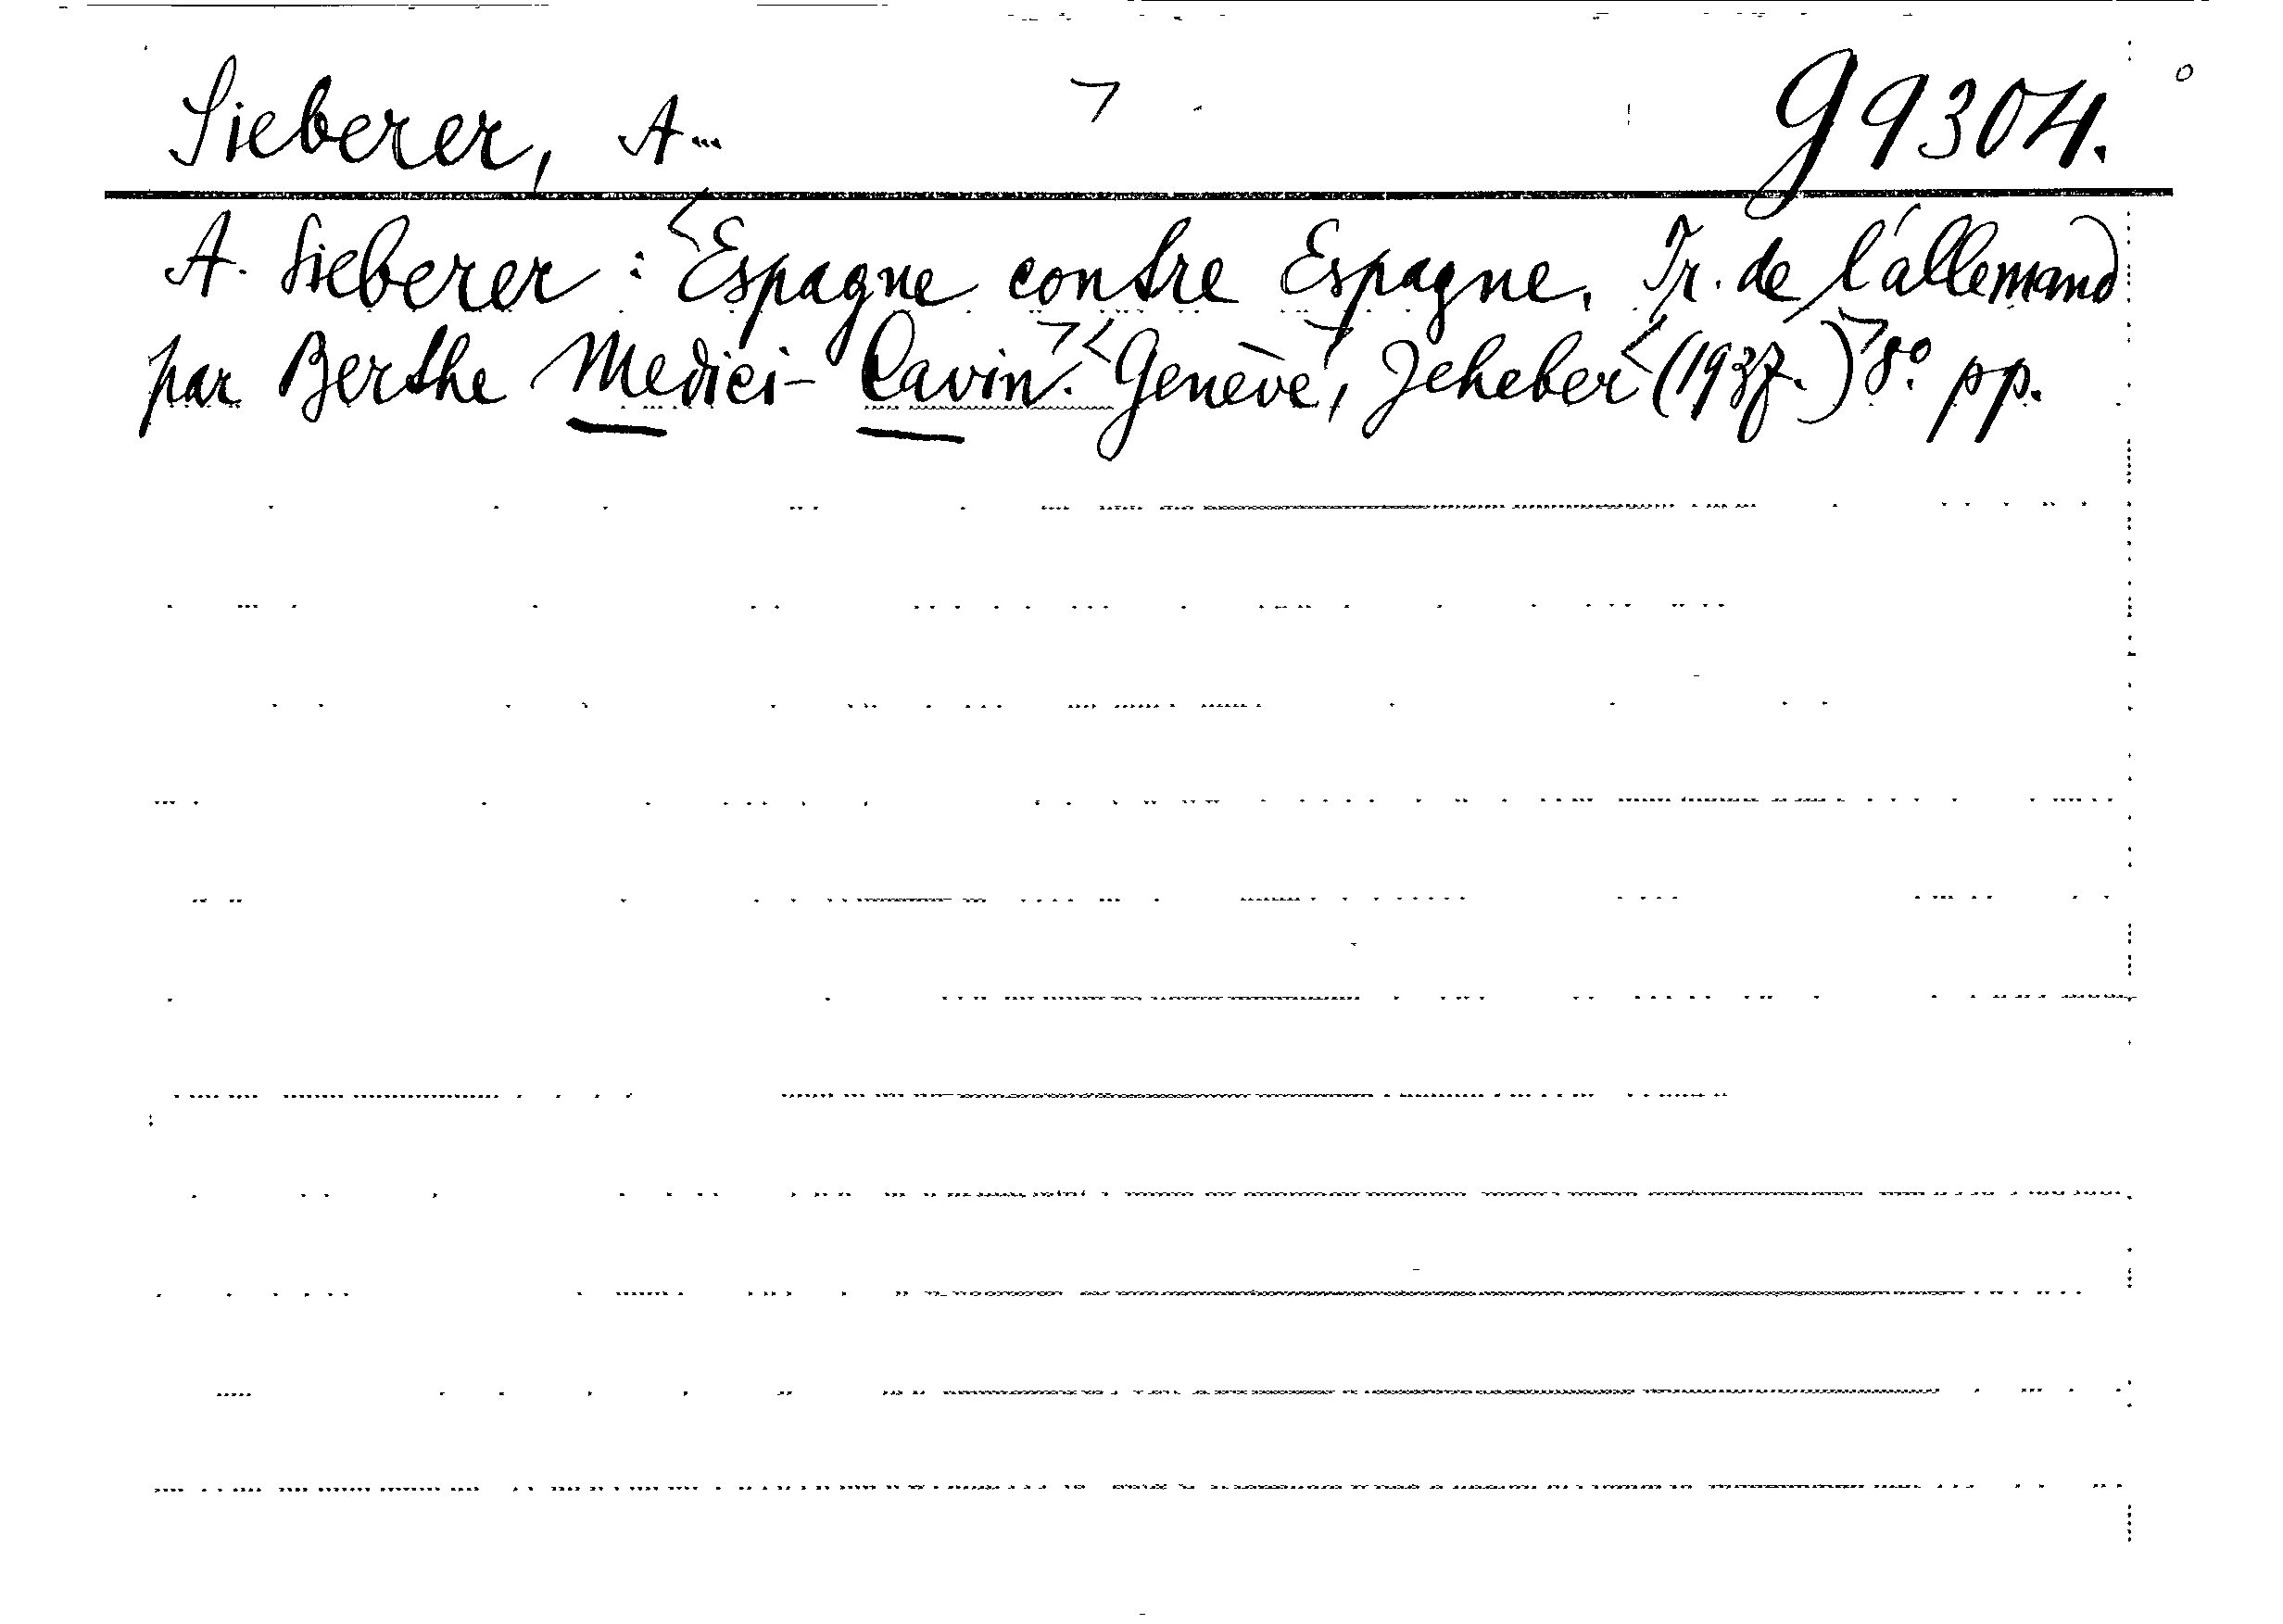 Sieberer, A... G 9304.
A. Sieberer : Espagne contre Espagne. Tr. de l'allemand
par Berthe Medici-Cavin. Genève, Jeheber (1937.) 8° pp.